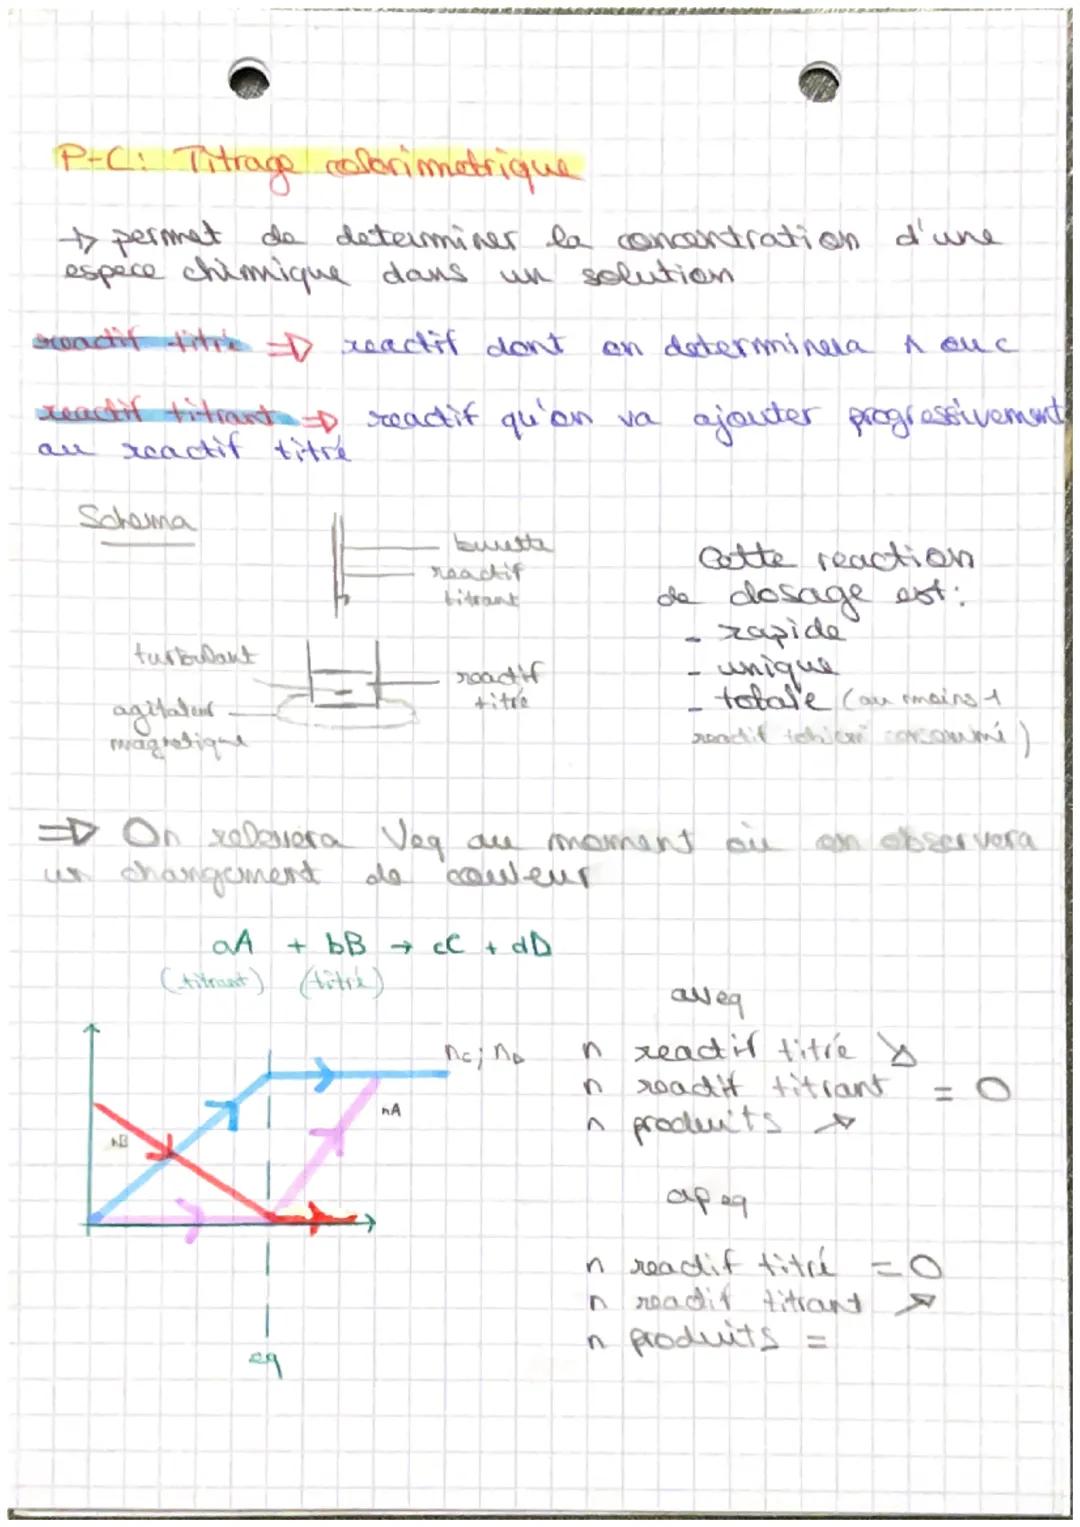 P-C: Titrage colorimetrique
↳ permet de determiner la concentration d'une
espece chimique dans un solution
reactif titré ⇒ reactif dont on determinera n ou c
reactif titrant ⇒ reactif qu'on va ajouter progressivement
au reactif titré
Schema
burette
reactif
titrant
turbulant
agitateur
magnetique
reactif
titré
Cette reaction
de dosage est:
- rapide
- unique
- totale (au moins 1
reactif consommé)
⇒ On relevera Veq au moment où on observera
un changement de couleur
aA + bB → cC + dD
(titrant) (titré)
nc; nD
nA
nB
eq
av eq
n reactif titré ↘
n reactif titrant = 0
n produits ↗
ap eq
n reactif titré = 0
n reactif titrant ↗
n produits =